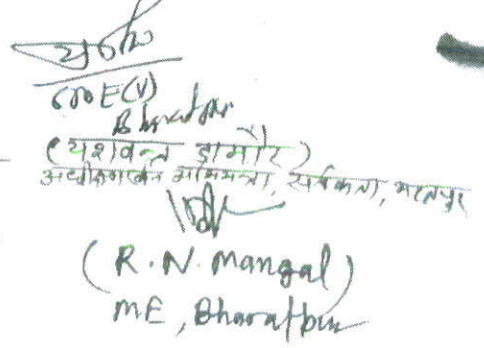 Bharatpur
(यशवन्त डामौर)
अधीक्षण खनि अभियन्ता, सतर्कता, भरतपुर
(R. N. Mangal)
ME, Bharatpur